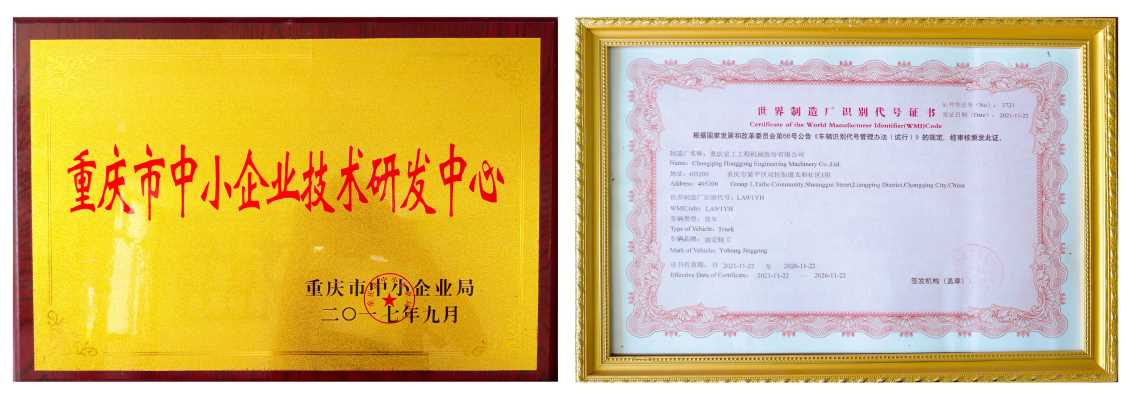 重庆市中小企业技术研发中心
重庆市中小企业局
二〇一七年九月
世界制造厂识别代号证书
Certificate of the World Manufacturer Identifier(WMI)Code
(No): 1721
(Date): 2021-11-22
根据国家发展和改革委员会第66号公告《车辆识别代号管理办法（试行）》的规定，经审核颁发此证。
制造厂名称：重庆宏工工程机械股份有限公司
Name: Chongqing Honggong Engineering Machinery Co.,Ltd.
地址：405200 重庆市梁平区双桂街道太和社区1组
Address: 405200 Group 1,Taihe Community,Shuanggui Street,Liangping District,Chongqing City,China
世界制造厂识别代号：LA9/1YH
WMICode: LA9/1YH
车辆类型：货车
Type of Vehicle: Truck
车辆品牌：
Mark of Vehicle: Yuhong Jinggong
证书有效期：自 2021-11-22 至 2026-11-22
Effective Date of Certificate: 2021-11-22 — 2026-11-22
签发机构（盖章）：